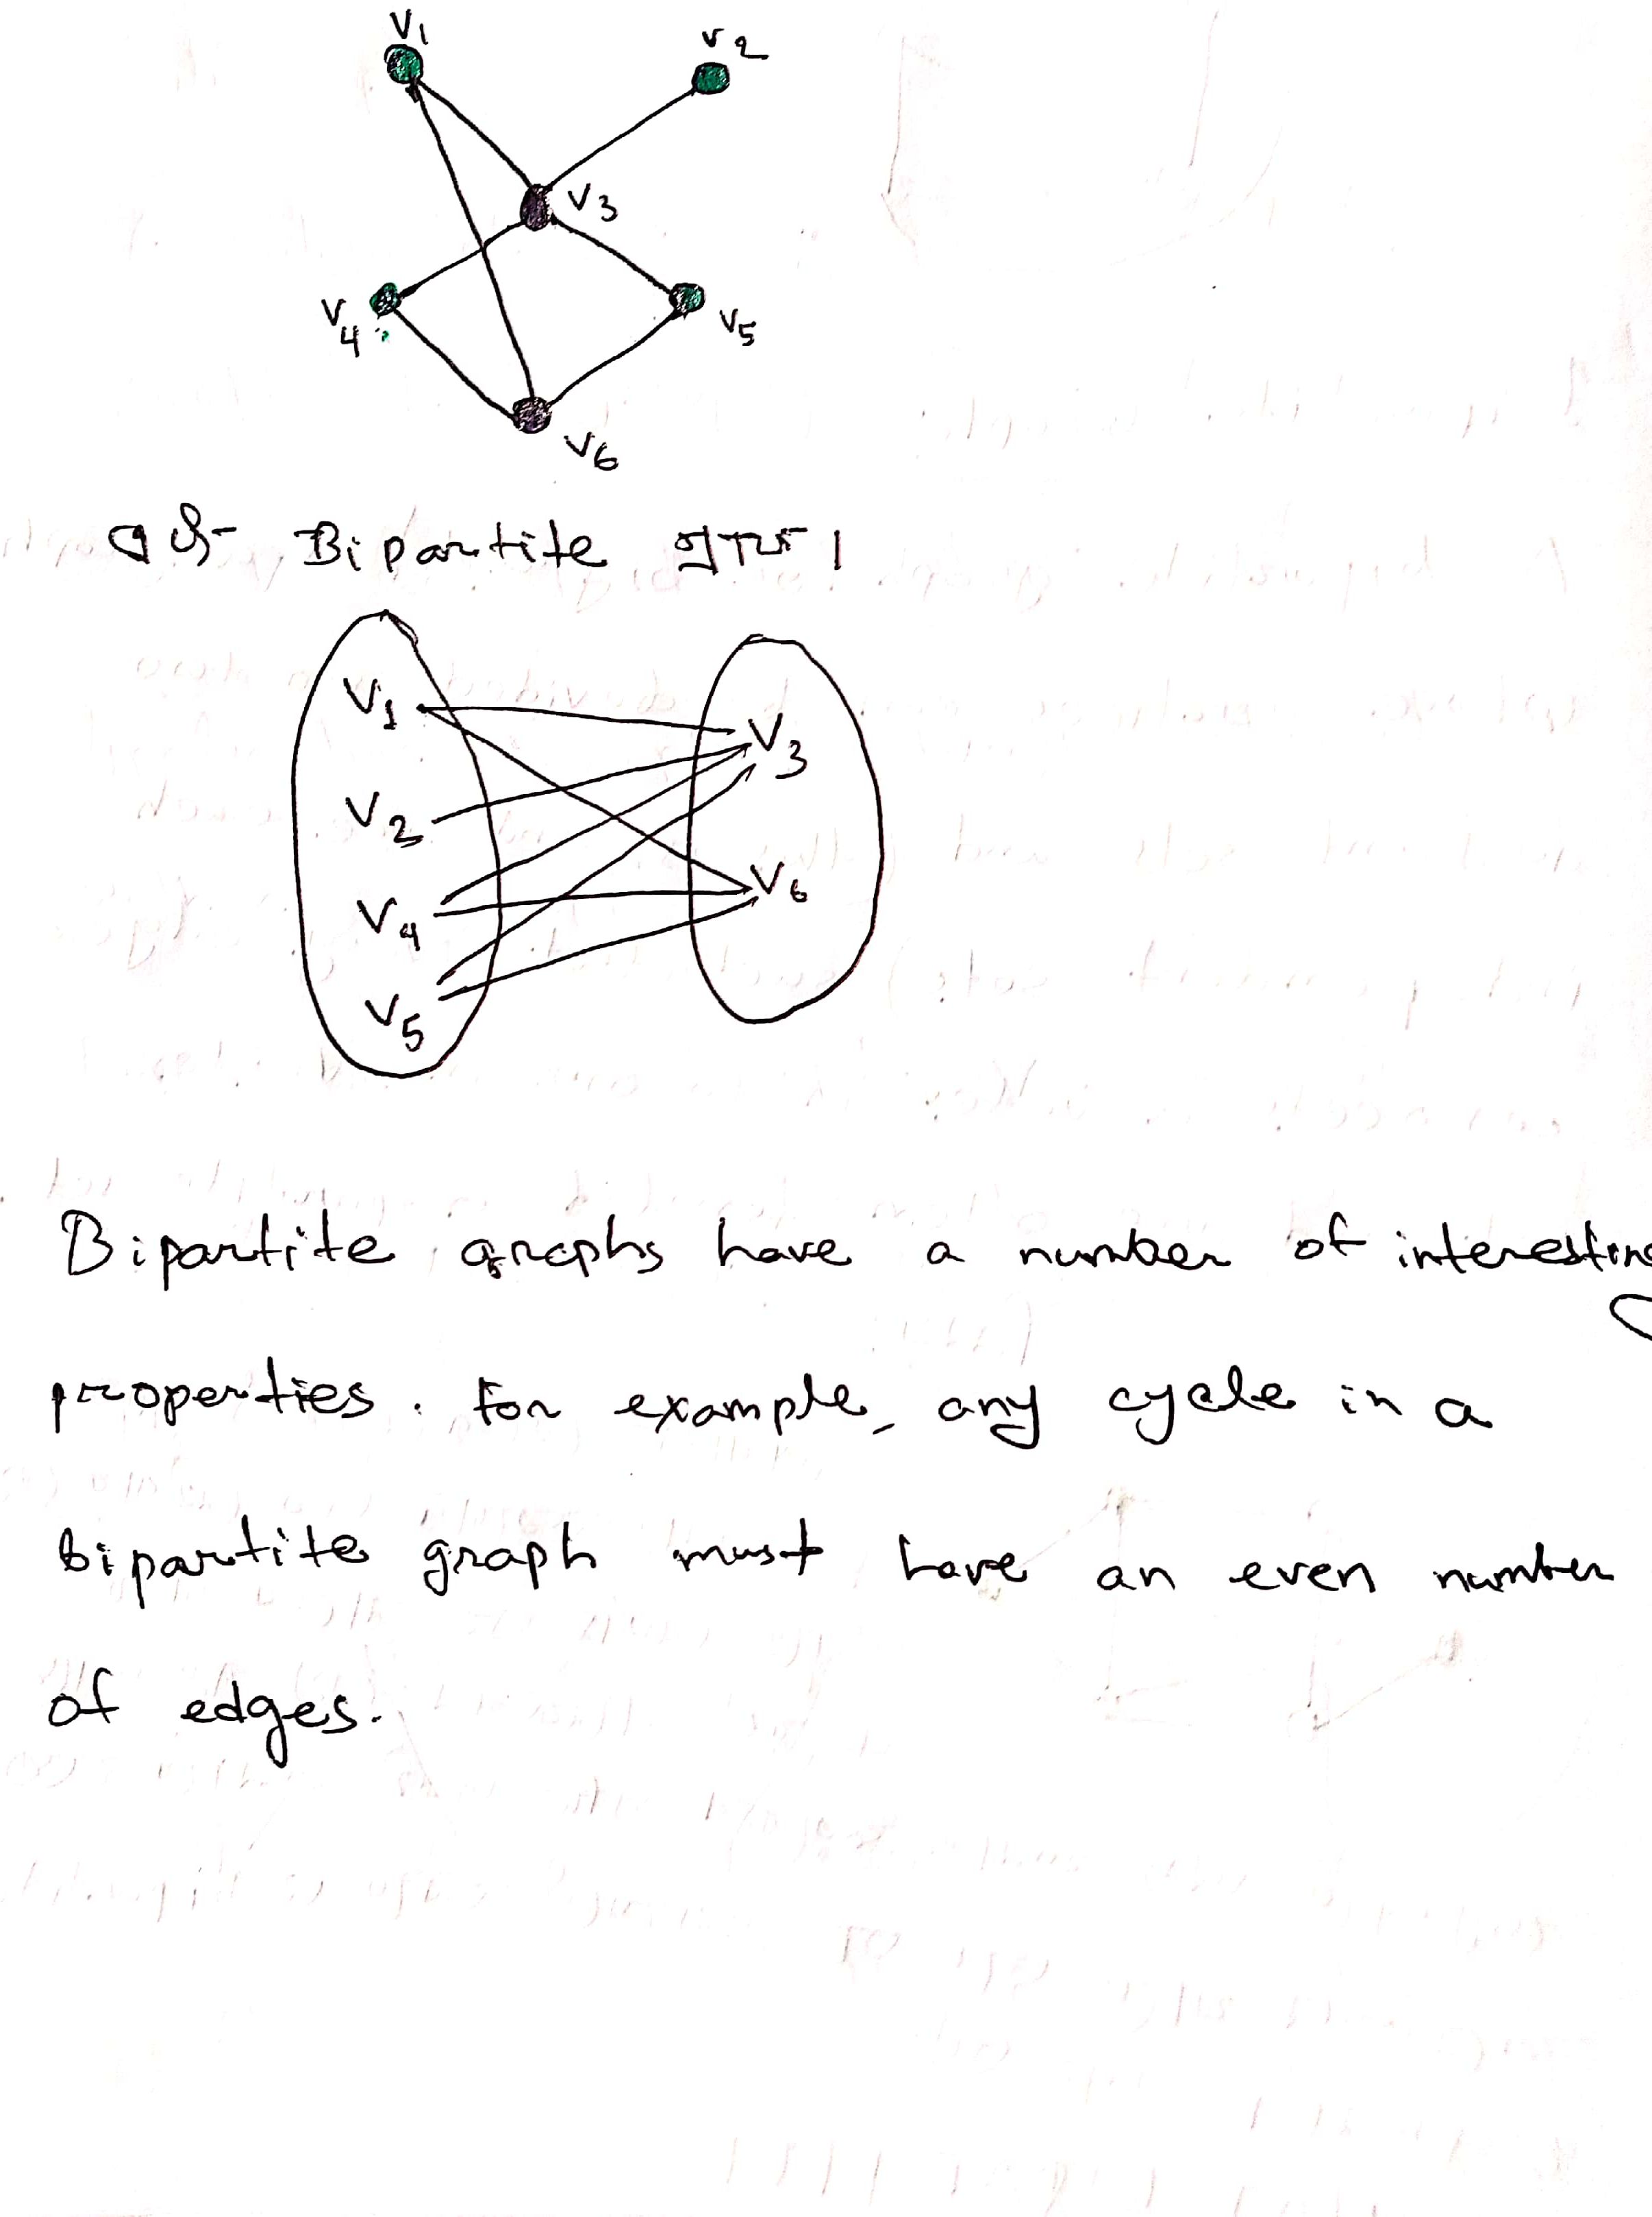 V1
V2
V3
V4
V5
V6
Bipartite গ্রাফ।
V1
V3
V2
V6
V4
V5
Bipartite graphs have a number of interesting
properties. For example, any cycle in a
bipartite graph must have an even number
of edges.